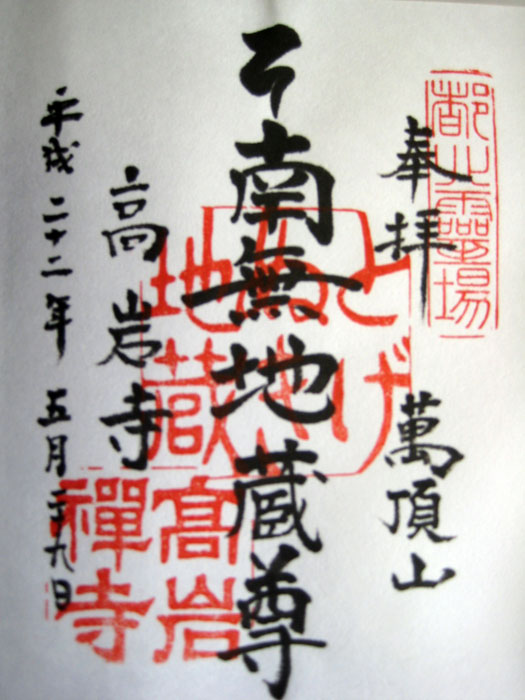 都心靈場
奉拝 萬頂山
南無地蔵尊
とげぬき
地蔵
高岩寺
髙岩
禪寺
平成二十二年 五月二十九日